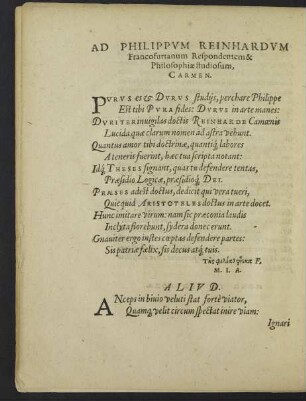 AD PHILIPPVM REINHARDVM
Francofurtanum Respondentem &
Philosophiæ studiosum,
CARMEN.
PVRVS es & DVRVS studijs, perchare Philippe
Est tibi PVRA fides: DVRVS in arte manes:
DVRITER invigilas doctis REINHARDE Camœnis
Lucida quæ clarum nomen ad astra vehunt.
Quantus amor tibi doctrinæ, quantiq́; labores
A teneris fuerint, hæc tua scripta notant:
Idq́; THESES signant, quas tu defendere tentas,
Præsidio Logicæ, præsidioq́; DEI.
PRÆSES adest doctus, dedicit qui vera tueri,
Quicquid ARISTOTELES doctus in arte docet.
Hunc imitare virum: nam sic præconia laudis
Inclyta florebunt, sydera donec erunt.
Gnaviter ergo iustes cœptas defendere partes:
Sis patriæ fœlix, sis decus atq́; tuis.
M. I. A.
ALIVD.
ANceps in bivio veluti stat fortè viator,
Quamq́; velit circum spectat inire viam:
Ignari